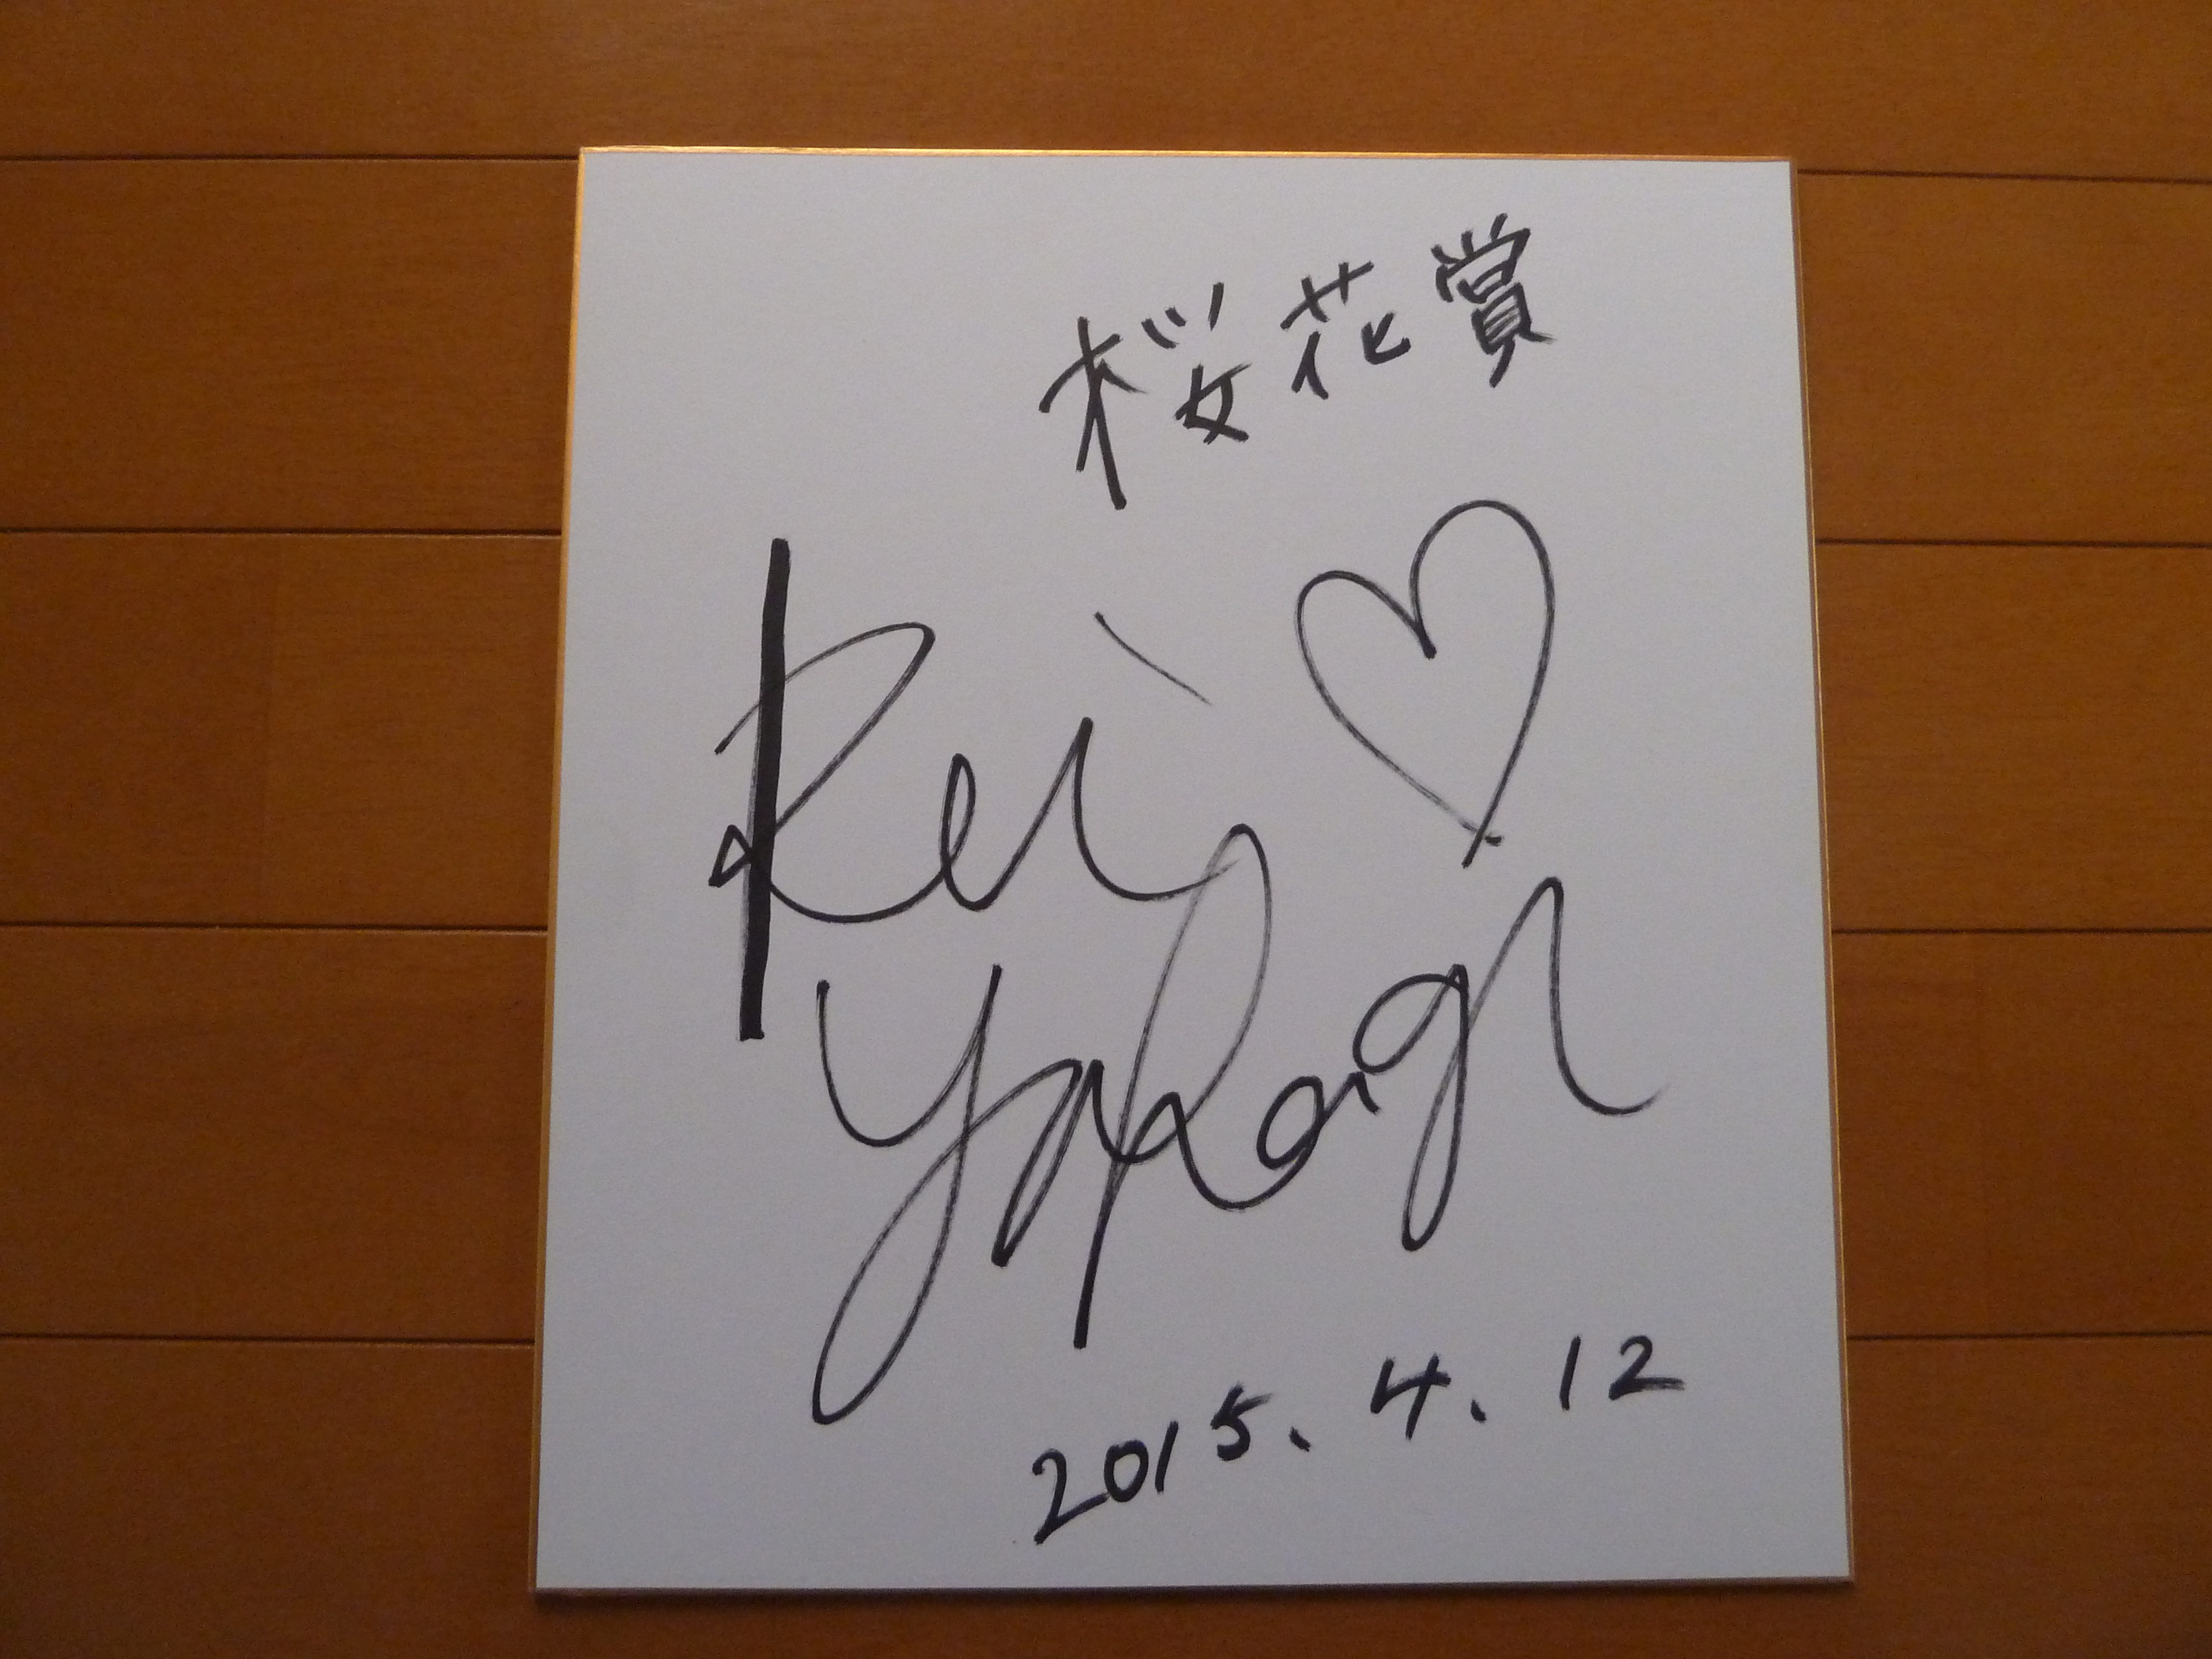 桜花賞
Rei
Yakogi
2015.4.12